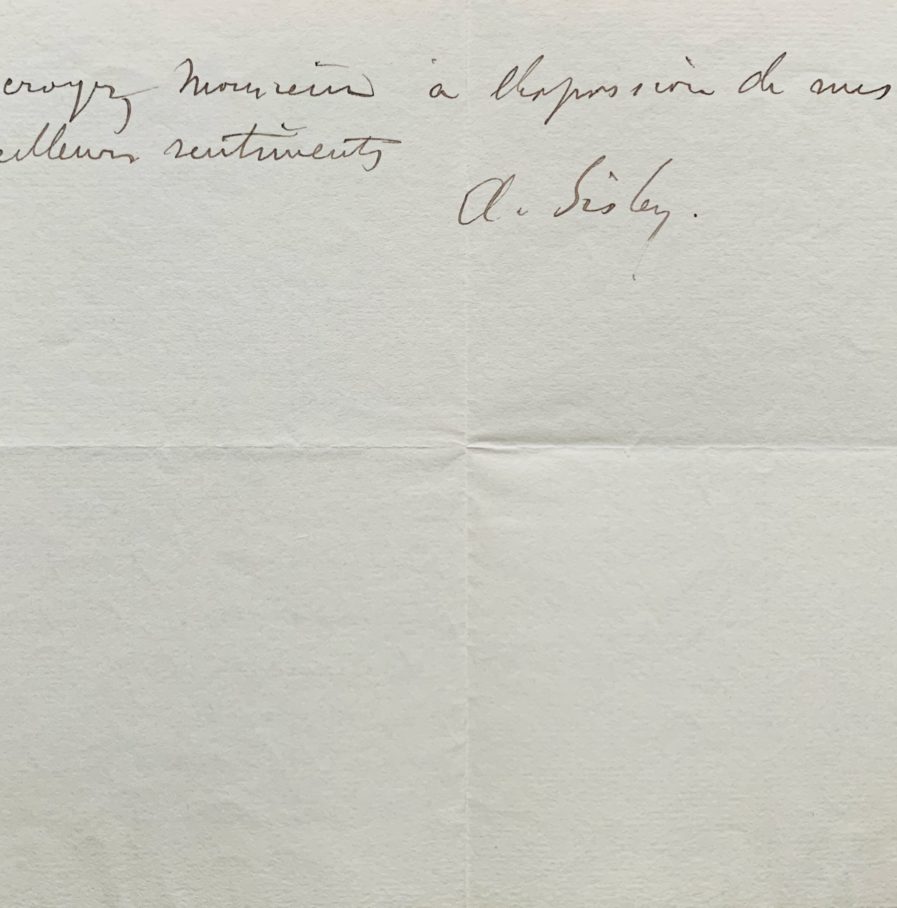 croyez Monsieur à l'expression de mes
eilleurs sentiments
A. Sisley.